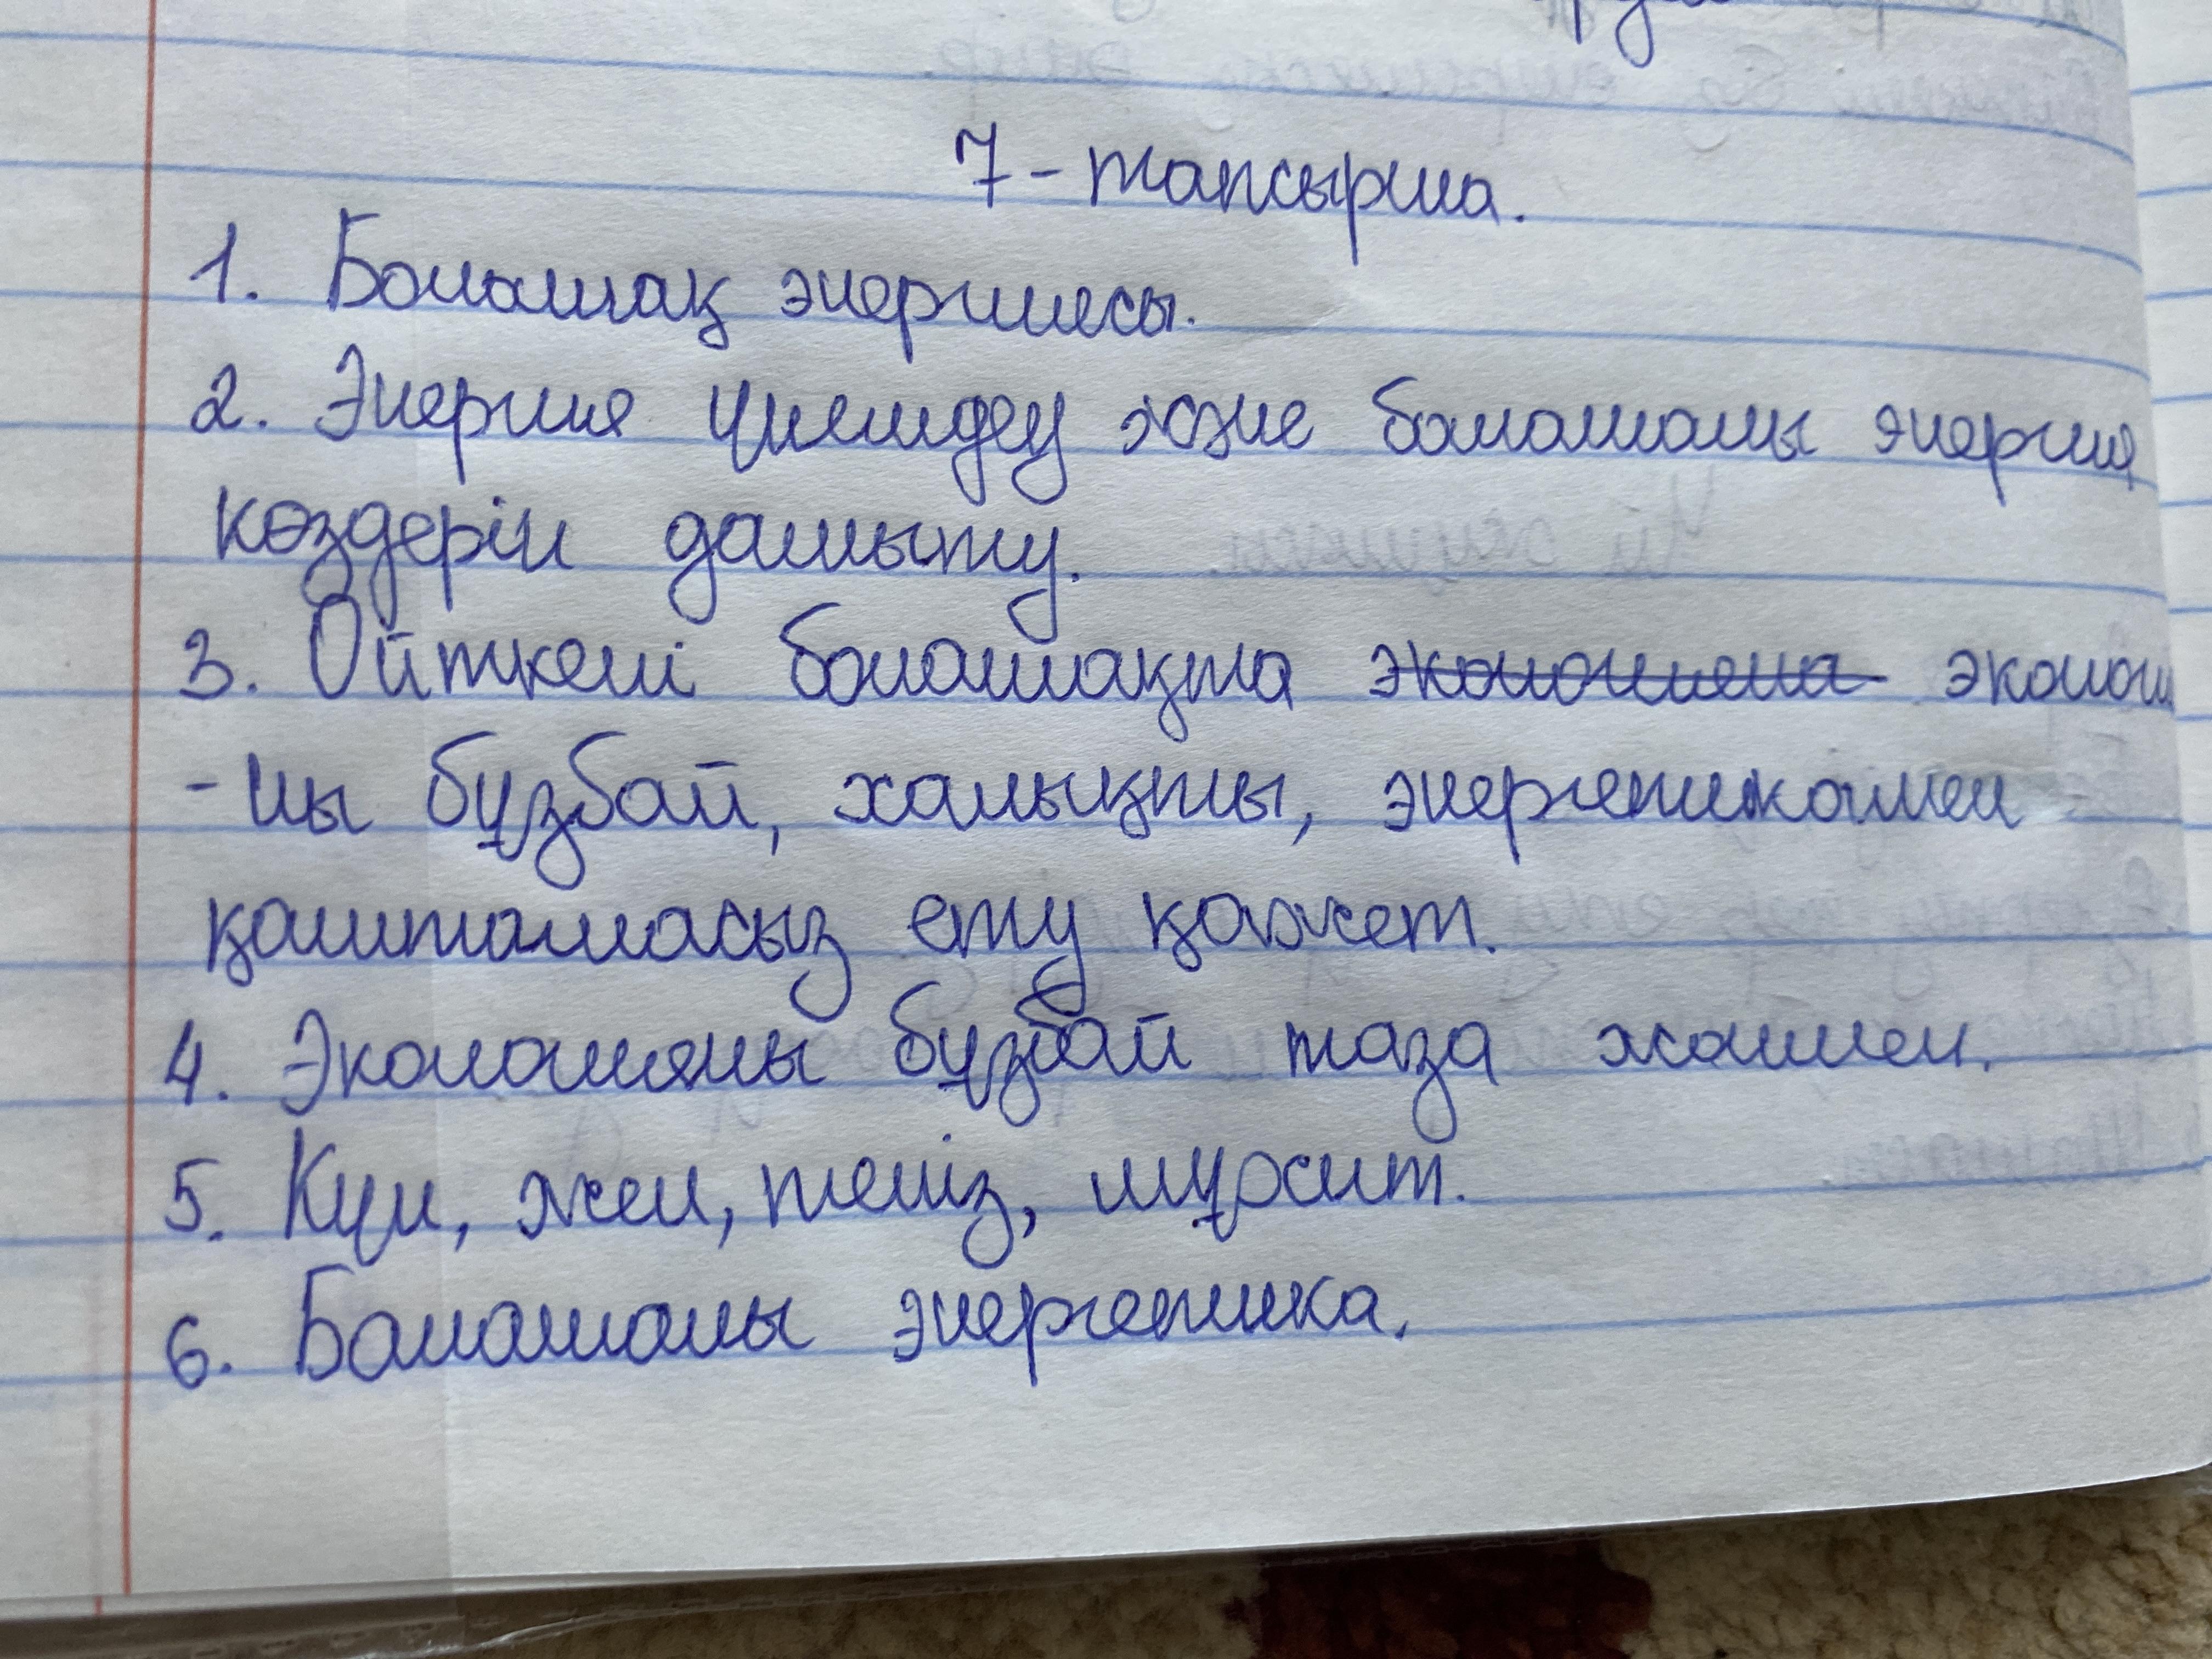 7-тапсырма.
1. Болашақ энергиясы.
2. Энергия үнемдеу және баламалы энергия
көздерін дамыту.
3. Өйткені болашақта экологияна эколог
-ны бұзбай, халықты, энергетикамен
қамтамасыз ету қажет.
4. Экологияны бұзбай таза жолмен.
5. Күн, жел, теңіз, мұхит.
6. Баламалы энергетика.